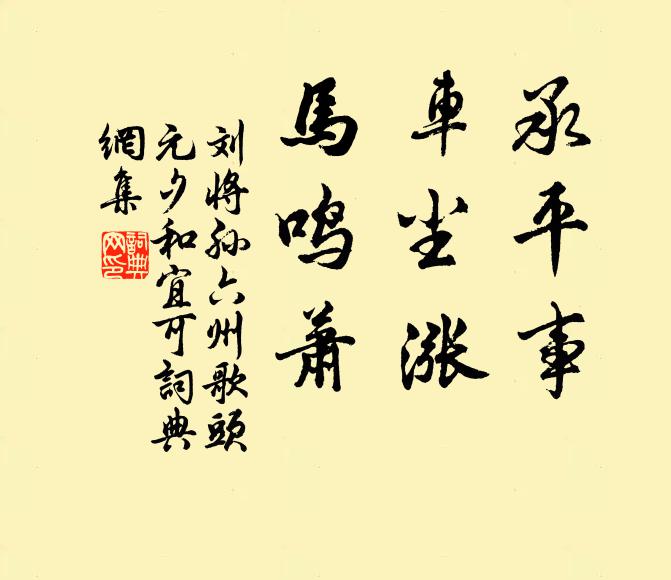 承平事
車尘漲
馬鸣蕭
刘將孙六州歌頭
元夕和宜可詞典
網集
詞典网印